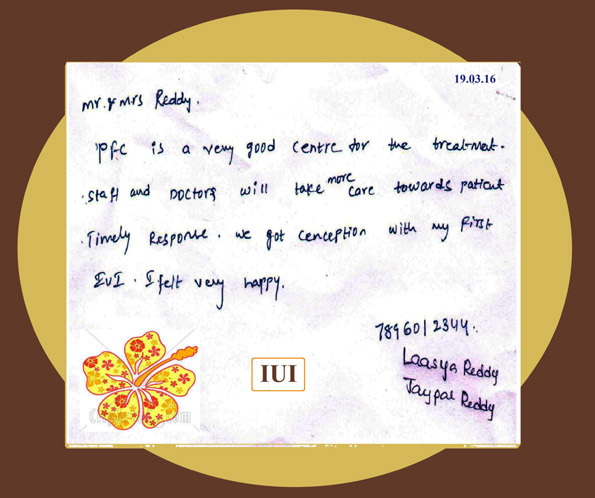 19.03.16
Mr. & Mrs Reddy.
PFC is a very good centre for the treatment.
staff and Doctors will take more care towards patient
Timely Response. We got conception with my First
IUI. I felt very happy.
7896012344.
Laasya Reddy
Jaypal Reddy
IUI